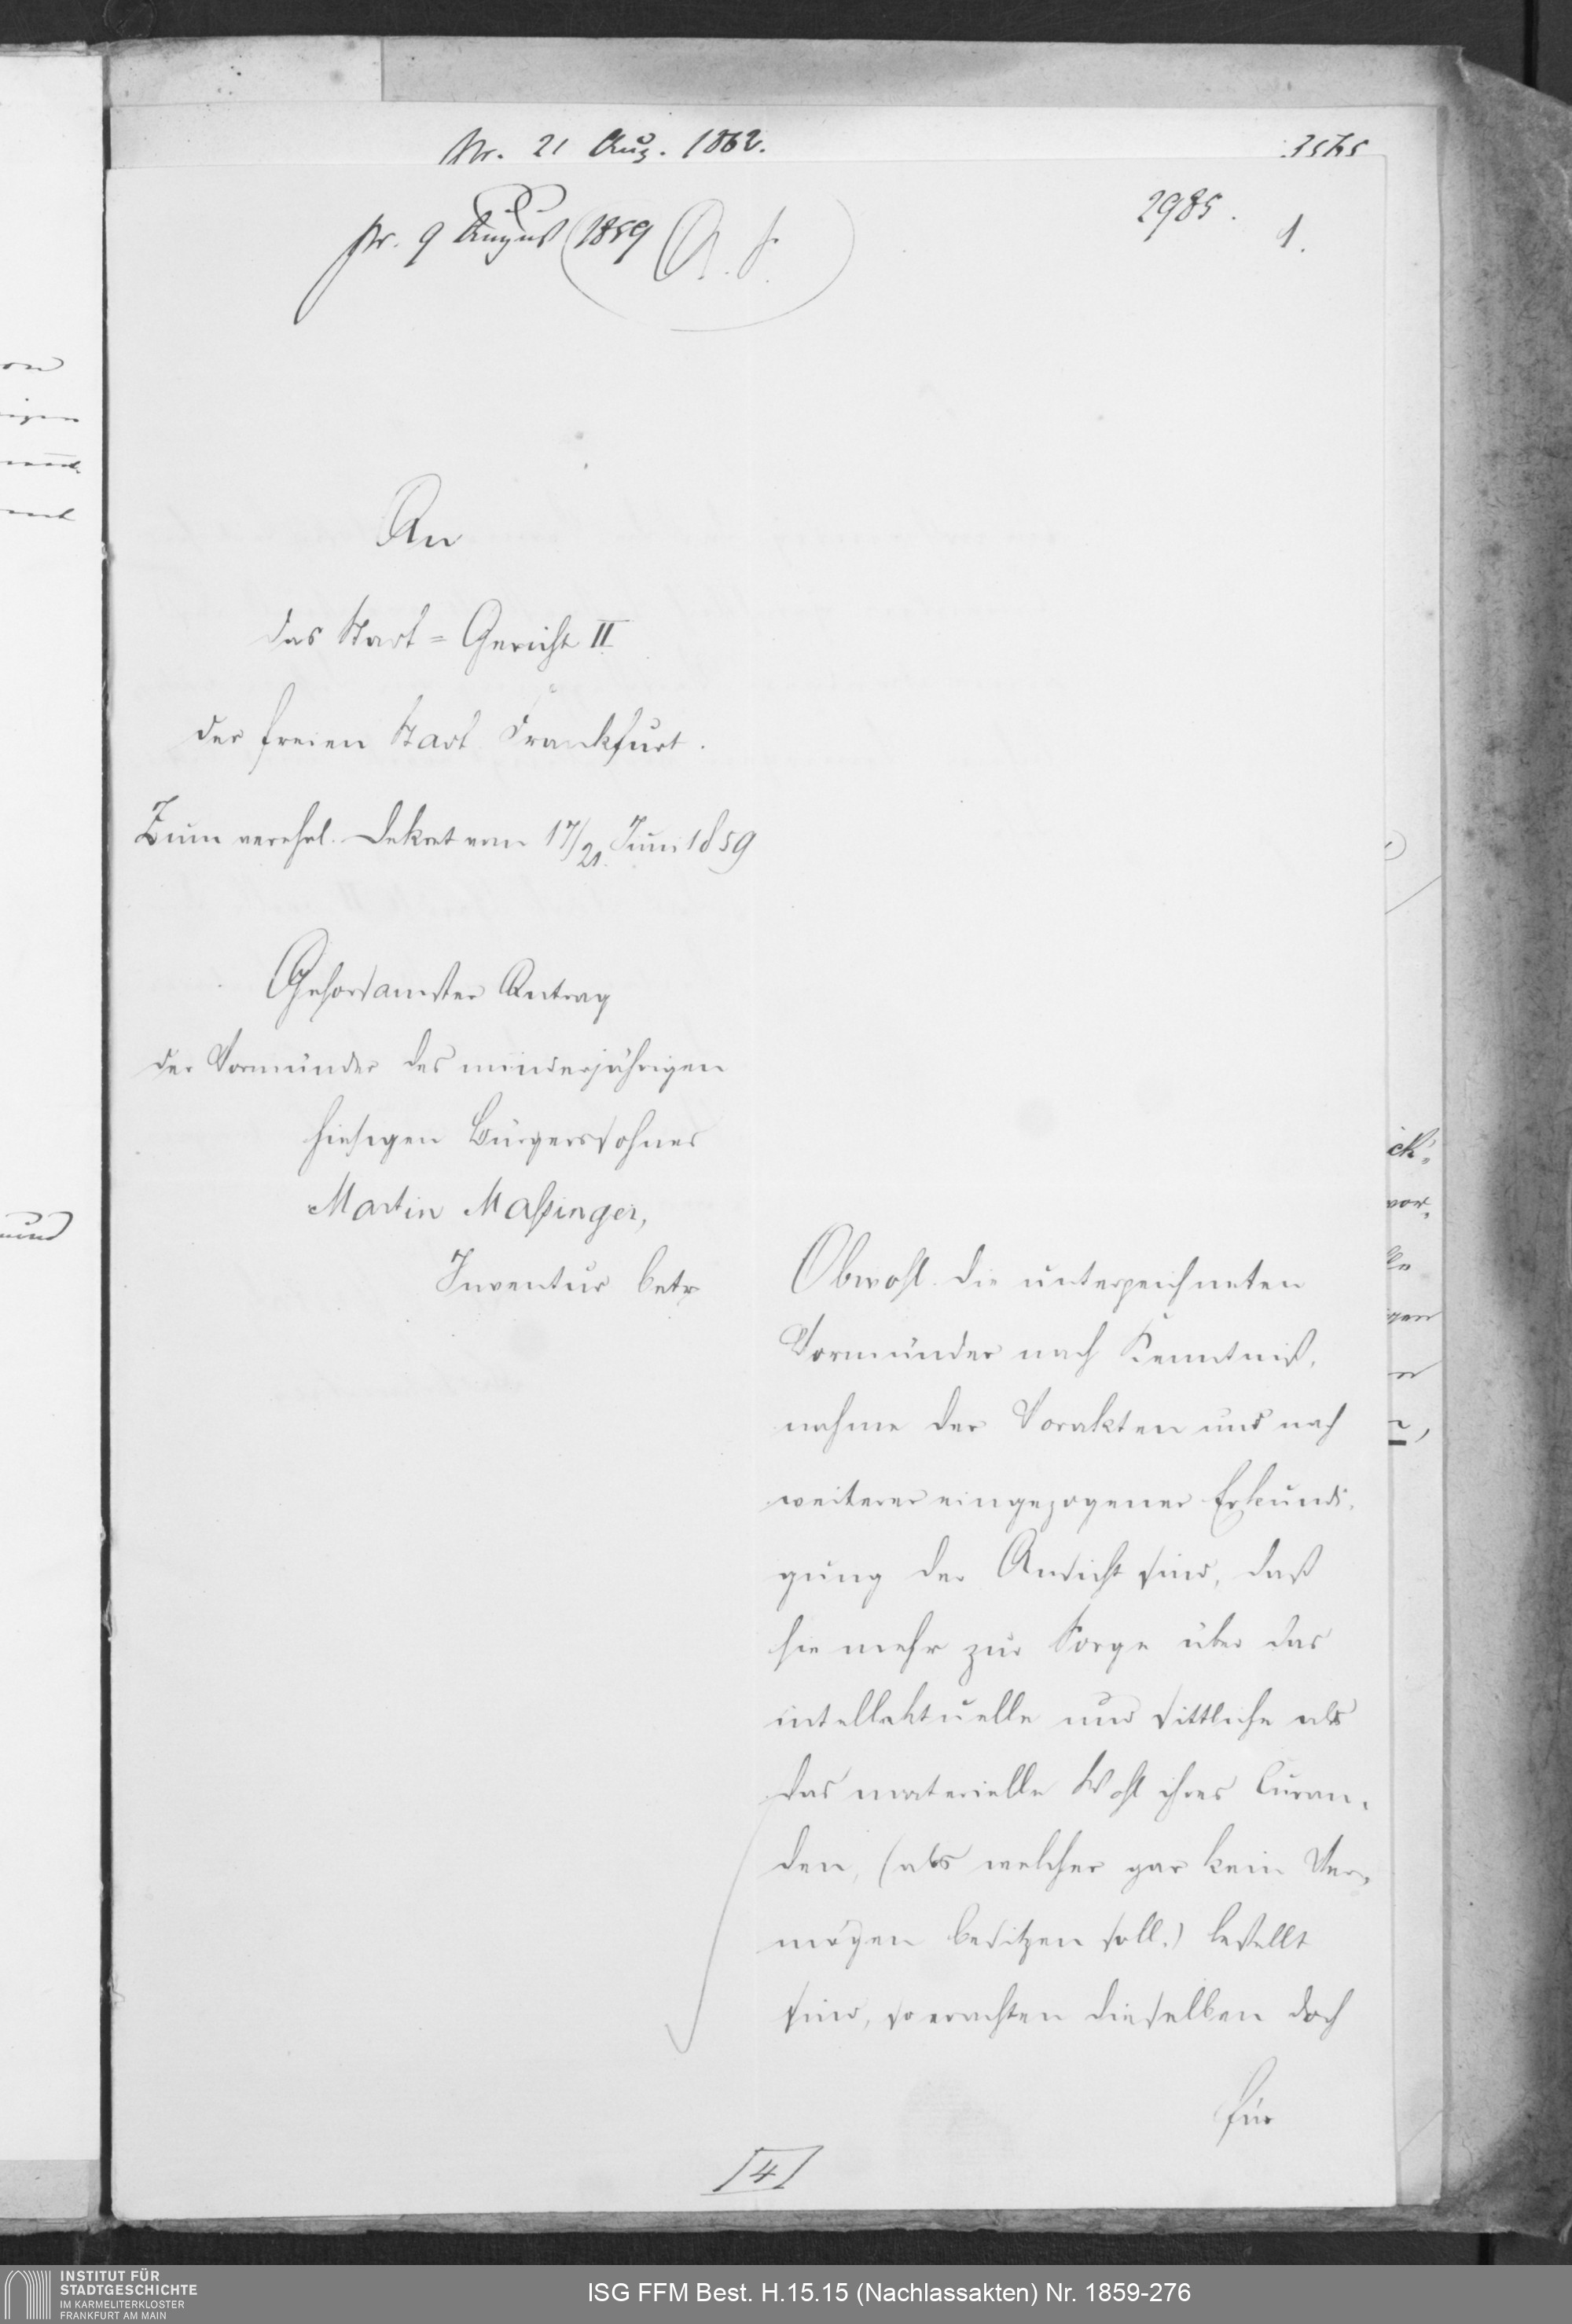 Pr. 21 Aug. 1862. 3575
pr. 9 August 1859 2985.
1.
An
das Stadt=Gericht II
der freien Stadt Frankfurt.
Zum verehrl. Dekret vom 17/21. Juni 1859
Gehorsamster Antrag
der Vormünder des minderjährigen
hiesigen Bürgerssohnes
Martin Maßinger,
Inventur betr
Obwohl die unterzeichneten
Vormünder nach Kenntniß,
nahme der Vorakten und nach
weiterer eingezogener Erkundi,
gung der Ansicht sind, daß
sie mehr zur Sorge über das
intellektuelle und sittliche als
das materielle Wohl ihres Curan,
den, (als welcher gar kein Ver,
mögen besitzen soll.) bestellt
sind, so erachten dieselben doch
für
[4]
und
INSTITUT FÜR
STADTGESCHICHTE
IM KARMELITERKLOSTER
FRANKFURT AM MAIN
ISG FFM Best. H.15.15 (Nachlassakten) Nr. 1859-276